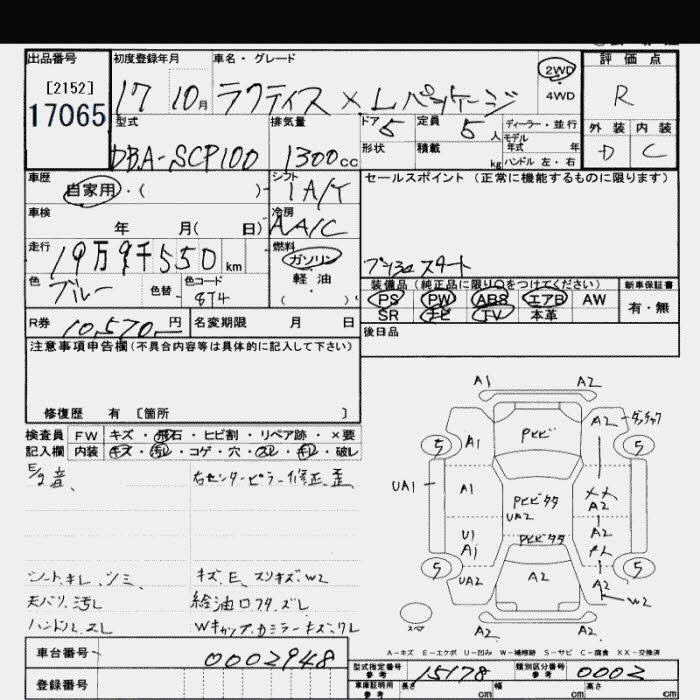 出品番号 初度登録年月 車名・グレード 評価点
[2152] 17 10月 ラクティス X Lパッケージ 2WD 4WD R
17065
型式 排気量 ドア 5 定員 5人 ディーラー・並行 外装 内装
DBA-SCP100 1300cc 形状 積載 kg モデル年式 年 ハンドル 左・右 D C
車歴 自家用・( ) シフト IA/T セールスポイント (正常に機能するものに限ります)
車検 年 月( 日) 冷房 AA/C
走行 19万9千550km 燃料 ガソリン プッシュスタート
色 ブルー 色替 色コード 8T4 軽油 ( ) 装備品(純正品に限り○をつけてください) 新車保証書
PS PW ABS エアB AW 有・無
SR ナビ TV 本革
R券 10,570円 名変期限 月 日 後日品
注意事項申告欄(不具合内容等は具体的に記入して下さい)
修復歴 有 〔箇所 〕
検査員 FW キズ・飛石・ヒビ割・リペア跡・×要
記入欄 内装 キズ・汚レ・コゲ・穴・スレ・キレ・破レ
E/g音、 右センターピラー修正、歪
シートキレ、シミ、 キズ、E、スリキズ、W2
天バリ、汚レ 給油口フタ、ズレ
ハンドル、スレ Wキャップ、カ、ミラーキズ、ワレ
A1 A2
A1 PヒビA2 ダッチャク
5 5
UA1 A1 Pヒビタタ UA2 XX A2
U1 A1 Pヒビタタ A2
5 UA2 A2 A2 W2 5
A2 A2
A-キズ E-エクボ U-凹み W-補修跡 S-サビ C-腐食 XX-交換済
車台番号 0002948 型式指定番号 参考 15178 類別区分番号 参考 0002
登録番号 車庫証明用 参考 長さ cm 幅 cm 高さ cm